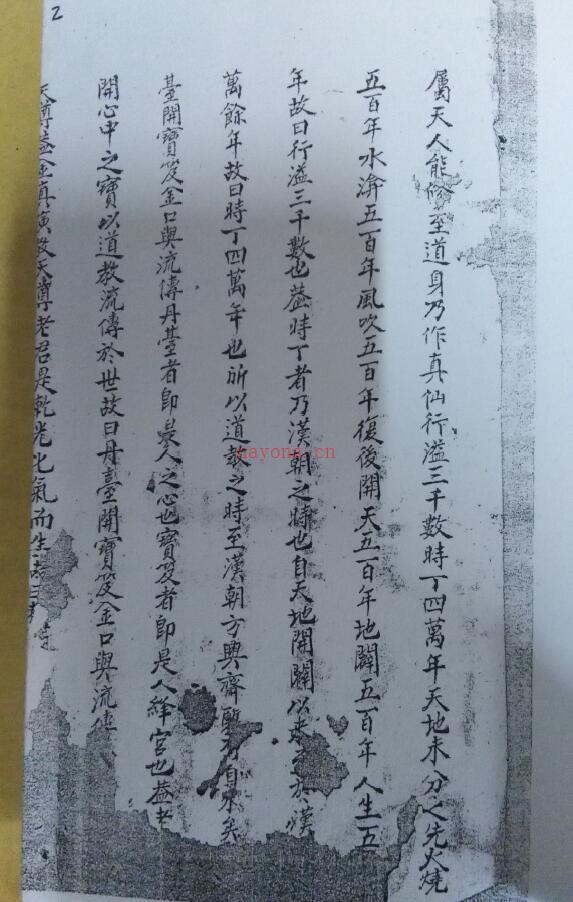 2
屬天人能修至道身乃作真仙行溢三千數時丁四萬年天地未分之先火燒
五百年水渰五百年風吹五百年復後開天五百年地闢五百年人生五
年故曰行溢三千數也蓋時丁者乃漢朝之時也自天地開闢以來至於漢
萬餘年故曰時丁四萬年也所以道教之時至漢朝方興齋
臺開寶笈金口與流傳丹臺者即是人之心也寶笈者即是人絳宮也蓋
開心中之寶以道教流傳於世故曰丹臺開寶笈金口與流傳
天尊
演教天尊老君是乾光化氣而生
nayona.cn